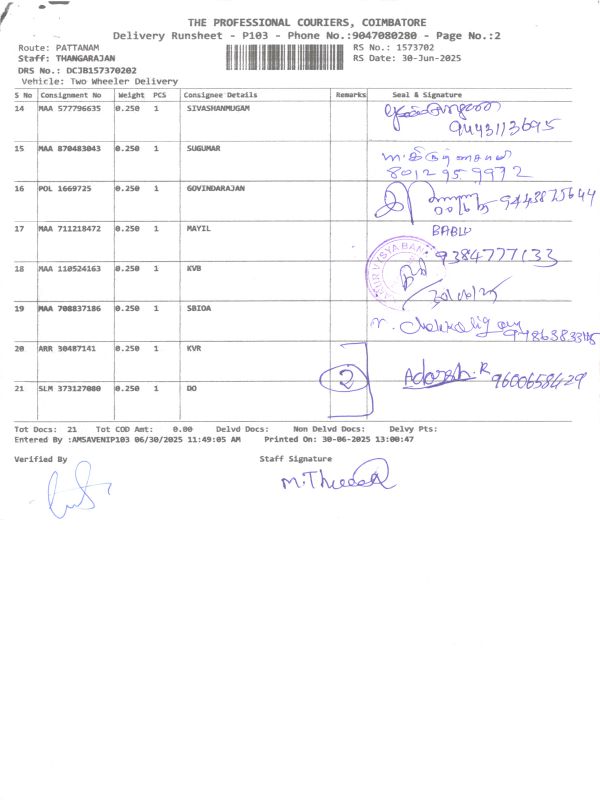 THE PROFESSIONAL COURIERS, COIMBATORE
Delivery Runsheet - P103 - Phone No.:9047080280 - Page No.:2
Route: PATTANAM
RS No.: 1573702
Staff: THANGARAJAN
RS Date: 30-Jun-2025
DRS No.: DCJB157370202
Vehicle: Two Wheeler Delivery
S No Consignment No Weight PCS Consignee Details Remarks Seal & Signature
14 MAA 577796635 0.250 1 SIVASHANMUGAM
9443113695
15 MAA 870483043 0.250 1 SUGUMAR
8012959972
16 POL 1669725 0.250 1 GOVINDARAJAN 9443875644
17 MAA 711218472 0.250 1 MAYIL BABLU
9384777133
18 MAA 110524163 0.250 1 KVB
19 MAA 708837186 0.250 1 SBIOA
20 ARR 30487141 0.250 1 KVR
2 Adarsh.R 9600658429
21 SLM 373127080 0.250 1 DO
Tot Docs: 21 Tot COD Amt: 0.00 Delvd Docs: Non Delvd Docs: Delvy Pts:
Entered By :AMSAVENIP103 06/30/2025 11:49:05 AM Printed On: 30-06-2025 13:00:47
Verified By Staff Signature